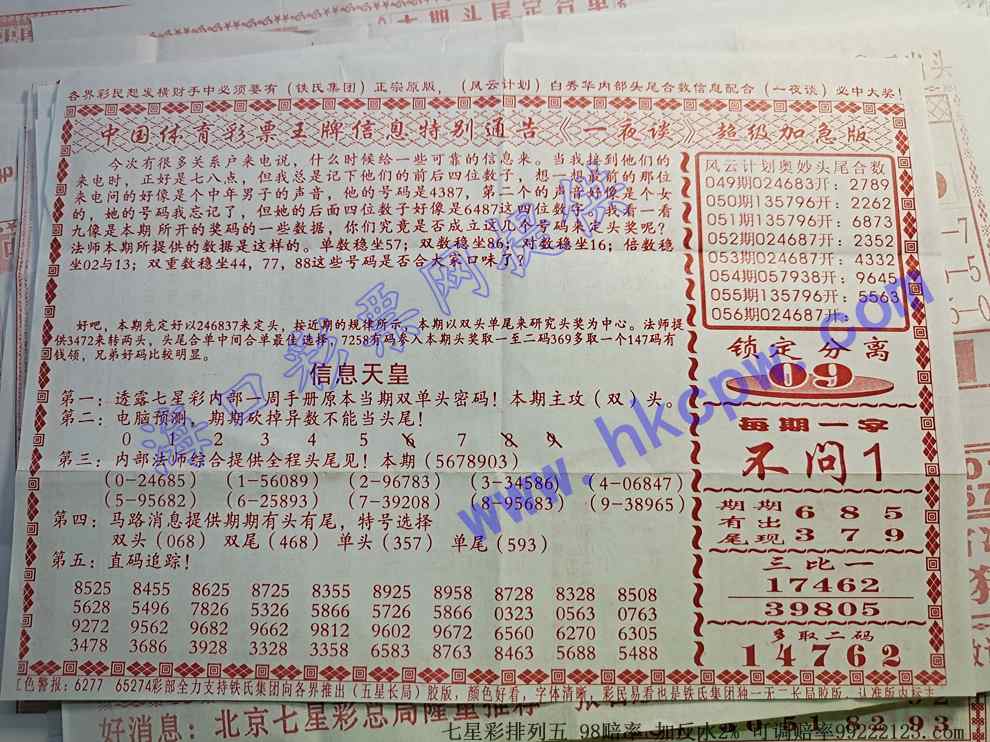 各界彩民想发横财手中必须要有（铁氏集团）正宗原版，（风云计划）白秀华内部头尾合数信息配合（一夜谈）必中大奖！
中国体育彩票王牌信息特别通告《一夜谈》超级加急版
今次有很多关系户来电说，什么时候给一些可靠的信息来。当我接到他们的
来电时，正好是七八点，但我总是记下他们的前后四位数子，想一想最前的那位
来电问的好像是个中年男子的声音，他的号码是4387，第二个的声音好像是个女
的，她的号码我忘记了，但她的后面四位数子好像是6487这四位数子，我看一看
九像是本期所开的奖码的一些数据，你们究竟是否成立这几个号码来定头奖呢？
法师本期所提供的数据是这样的。单数稳坐57；双数稳坐86；对数稳坐16；倍数稳
坐02与13；双重数稳坐44，77，88这些号码是否合大家口味了？
好吧，本期先定好以246837来定头，按近期的规律所示，本期以双头单尾来研究头奖为中心。法师提
供3472来转两头，头尾合单中间合单最佳选择，7258有码参入本期头奖取一至二码369多取一个147码有
钱领，兄弟好码比较明显。
信息天皇
第一：透露七星彩内部一周手册原本当期双单头密码！本期主攻（双）头。
第二：电脑预测，期期砍掉异数不能当头尾！
0 1 2 3 4 5 6 7 8 9
第三：内部法师综合提供全程头尾见！本期（5678903）
（0-24685） （1-56089） （2-96783） （3-34586） （4-06847）
（5-95682） （6-25893） （7-39208） （8-95683） （9-38965）
第四：马路消息提供期期有头有尾，特号选择
双头（068） 双尾（468） 单头（357） 单尾（593）
第五：直码追踪！
8525 8455 8625 8725 8355 8925 8958 8728 8328 8508
5628 5496 7826 5326 5866 5726 5866 0323 0563 0763
9272 9562 9682 9662 9812 9602 9672 6560 6270 6305
3478 3686 3928 3328 3358 6583 8763 8463 5688 5488
风云计划奥妙头尾合数
049期024683开：2789
050期135796开：2262
051期135796开：6873
052期024687开：2352
053期024687开：4332
054期057938开：9645
055期135796开：5563
056期024687开：
锁定分离
09
每期一字
不问1
期期 6 8 5
有出
尾现 3 7 9
三比一
17462
39805
多取二码
14762
红色警报：6277 65274彩部全力支持铁氏集团向各界推出（五星长局）胶版，颜色好看，字体清晰，彩民易看也是铁氏集团独一无二长局胶版，认准版内标主
好消息：北京七星彩总局隆重推荐
海口彩票网提供
www.hkcpw.com
七星彩排列五 98赔率 加反水2% 可调赔率99222123.com